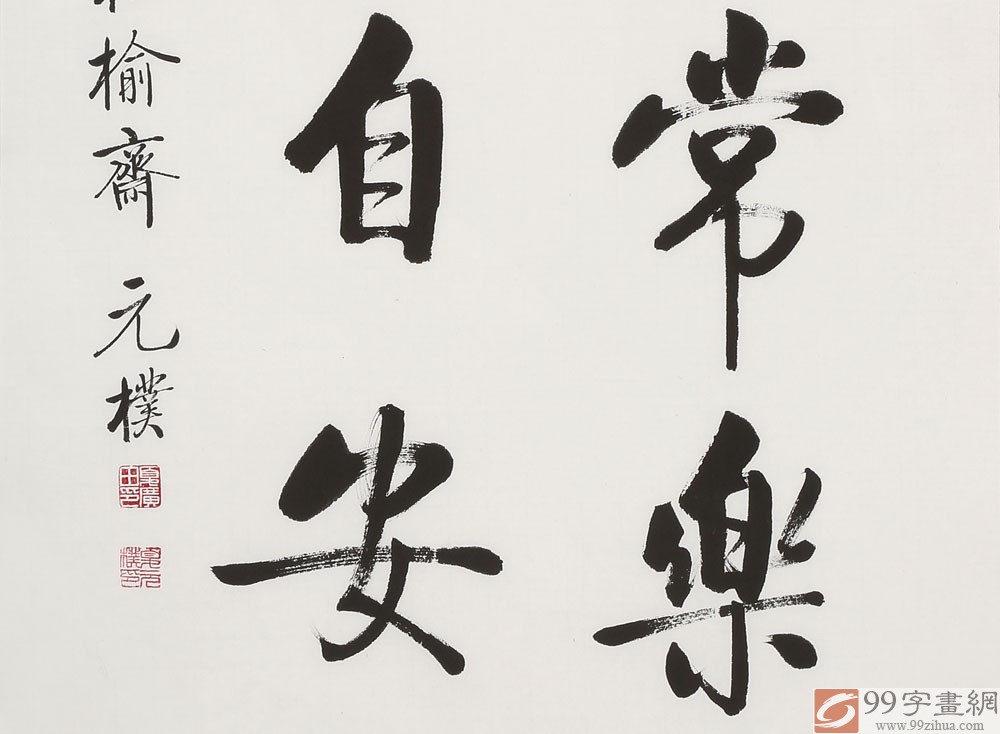 常樂
自安
榆齋 元樸
99字畫網
www.99zihua.com